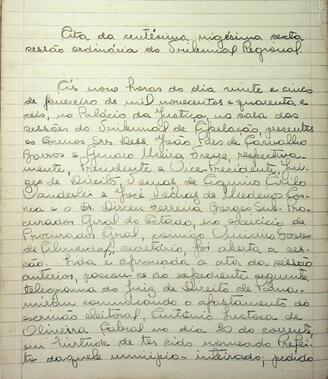 Ata da centésima vigésima sexta
sessão ordinária do Tribunal Regional
Ás nove horas do dia vinte e cinco
de fevereiro de mil novecentos e quarenta e
seis, no Palácio da Justiça, na sala das
sessões do Tribunal de Apelação, presentes
os Exmos. Srs. Dess. João Paes de Carvalho
Barros e Genaro Freire, respectiva-
mente, Presidente e Vice-Presidente, Jui-
zes de Direito, Tomaz de Aquino Cirilo
Wanderlei e José
e o Dr. Dirceu Ferreira Borges, Sub-Pro-
curador Geral do Estado, no exercício de
Procurador Geral, comigo Vinicius
de Almeida, secretário, foi aberta a ses-
são. Lida e aprovada a ata da sessão
anterior, passou-se ao expediente seguinte:
telegrama do Juiz de Direito de
comunicando o afastamento do
escrivão eleitoral, Antônio
Oliveira Cabral no dia 20 do corrente,
em virtude de ter sido nomeado Prefei-
to daquele município - inteirado; pedido